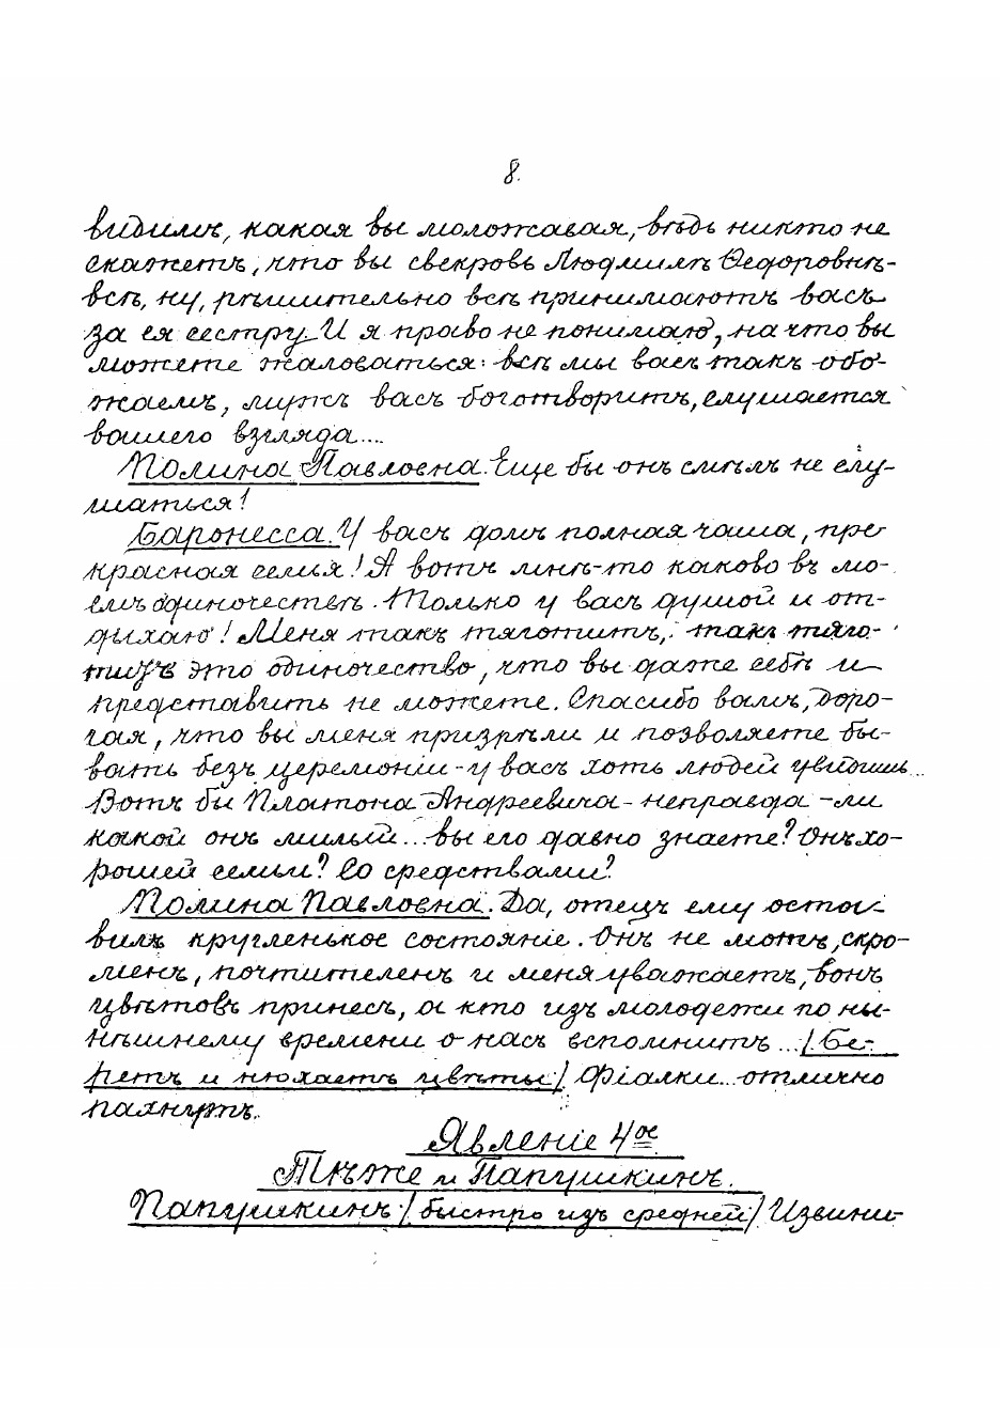 8.
видимъ, какая вы моложавая, вѣдь никто не
скажетъ, что вы свекровь Людмилѣ Ѳедоровнѣ-
всѣ, ну, рѣшительно всѣ принимаютъ васъ
за ея сестру. И я право не понимаю, на что вы
можете жаловаться: всѣ мы васъ такъ обо-
жаемъ, мужъ васъ боготворитъ, слушается
вашего взгляда....
Полина Павловна. Еще бы онъ смѣлъ не слу-
шаться!
Баронесса. У васъ домъ полная чаша, пре-
красная семья! А вотъ мнѣ-то каково въ мо-
емъ одиночествѣ. Только у васъ душой и от-
дыхаю! Меня такъ тяготитъ, такъ тяго-
титъ это одиночество, что вы даже себѣ и
представить не можете. Спасибо вамъ, доро-
гая, что вы меня призрѣли и позволяете бы-
вать безъ церемоніи - у васъ хоть людей увидишь...
Вотъ бы Платона Андреевича - неправда - ли
какой онъ милый... вы его давно знаете? Онъ хо-
рошей семьи? Со средствами?
Полина Павловна. Да, отецъ ему оста-
вилъ кругленькое состояніе. Онъ не мотъ, скро-
менъ, почтителенъ и меня уважаетъ, вонъ
цвѣтовъ принесъ, а кто изъ молодежи по ны-
нѣшнему времени о насъ вспомнитъ... /Бе-
ретъ и нюхаетъ цвѣты/ Фіалки... отлично
пахнутъ.
Явленіе 4ое
Тѣже и Папушкинъ.
Папушкинъ /быстро изъ средней/ Извини-